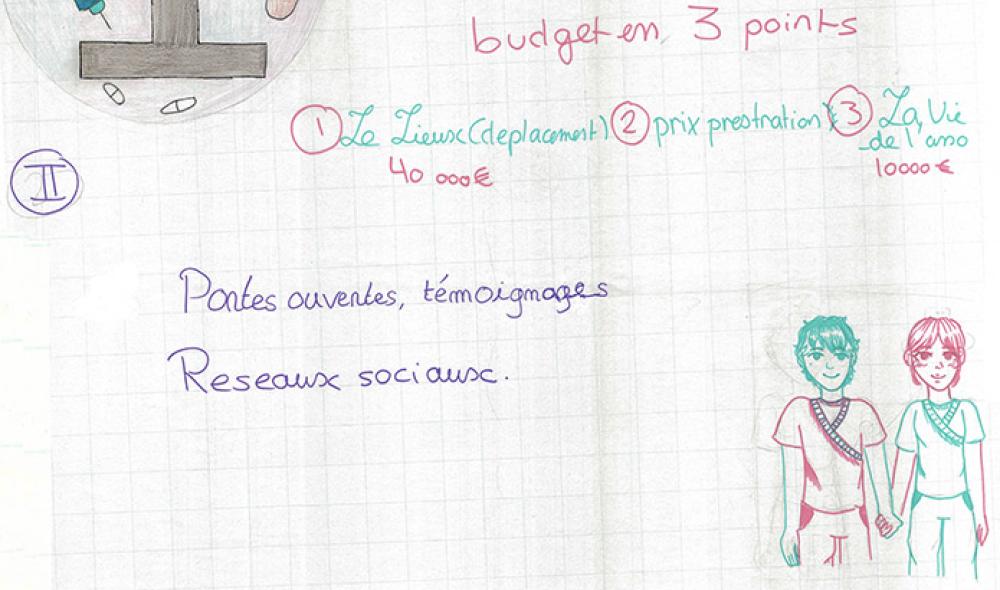 budget en 3 points
① Le Lieux (deplacement) ② prix prestration ③ La Vie
de l'asso
40 000€
10000 €
II
Portes ouvertes, témoignages
Reseaux sociaux.